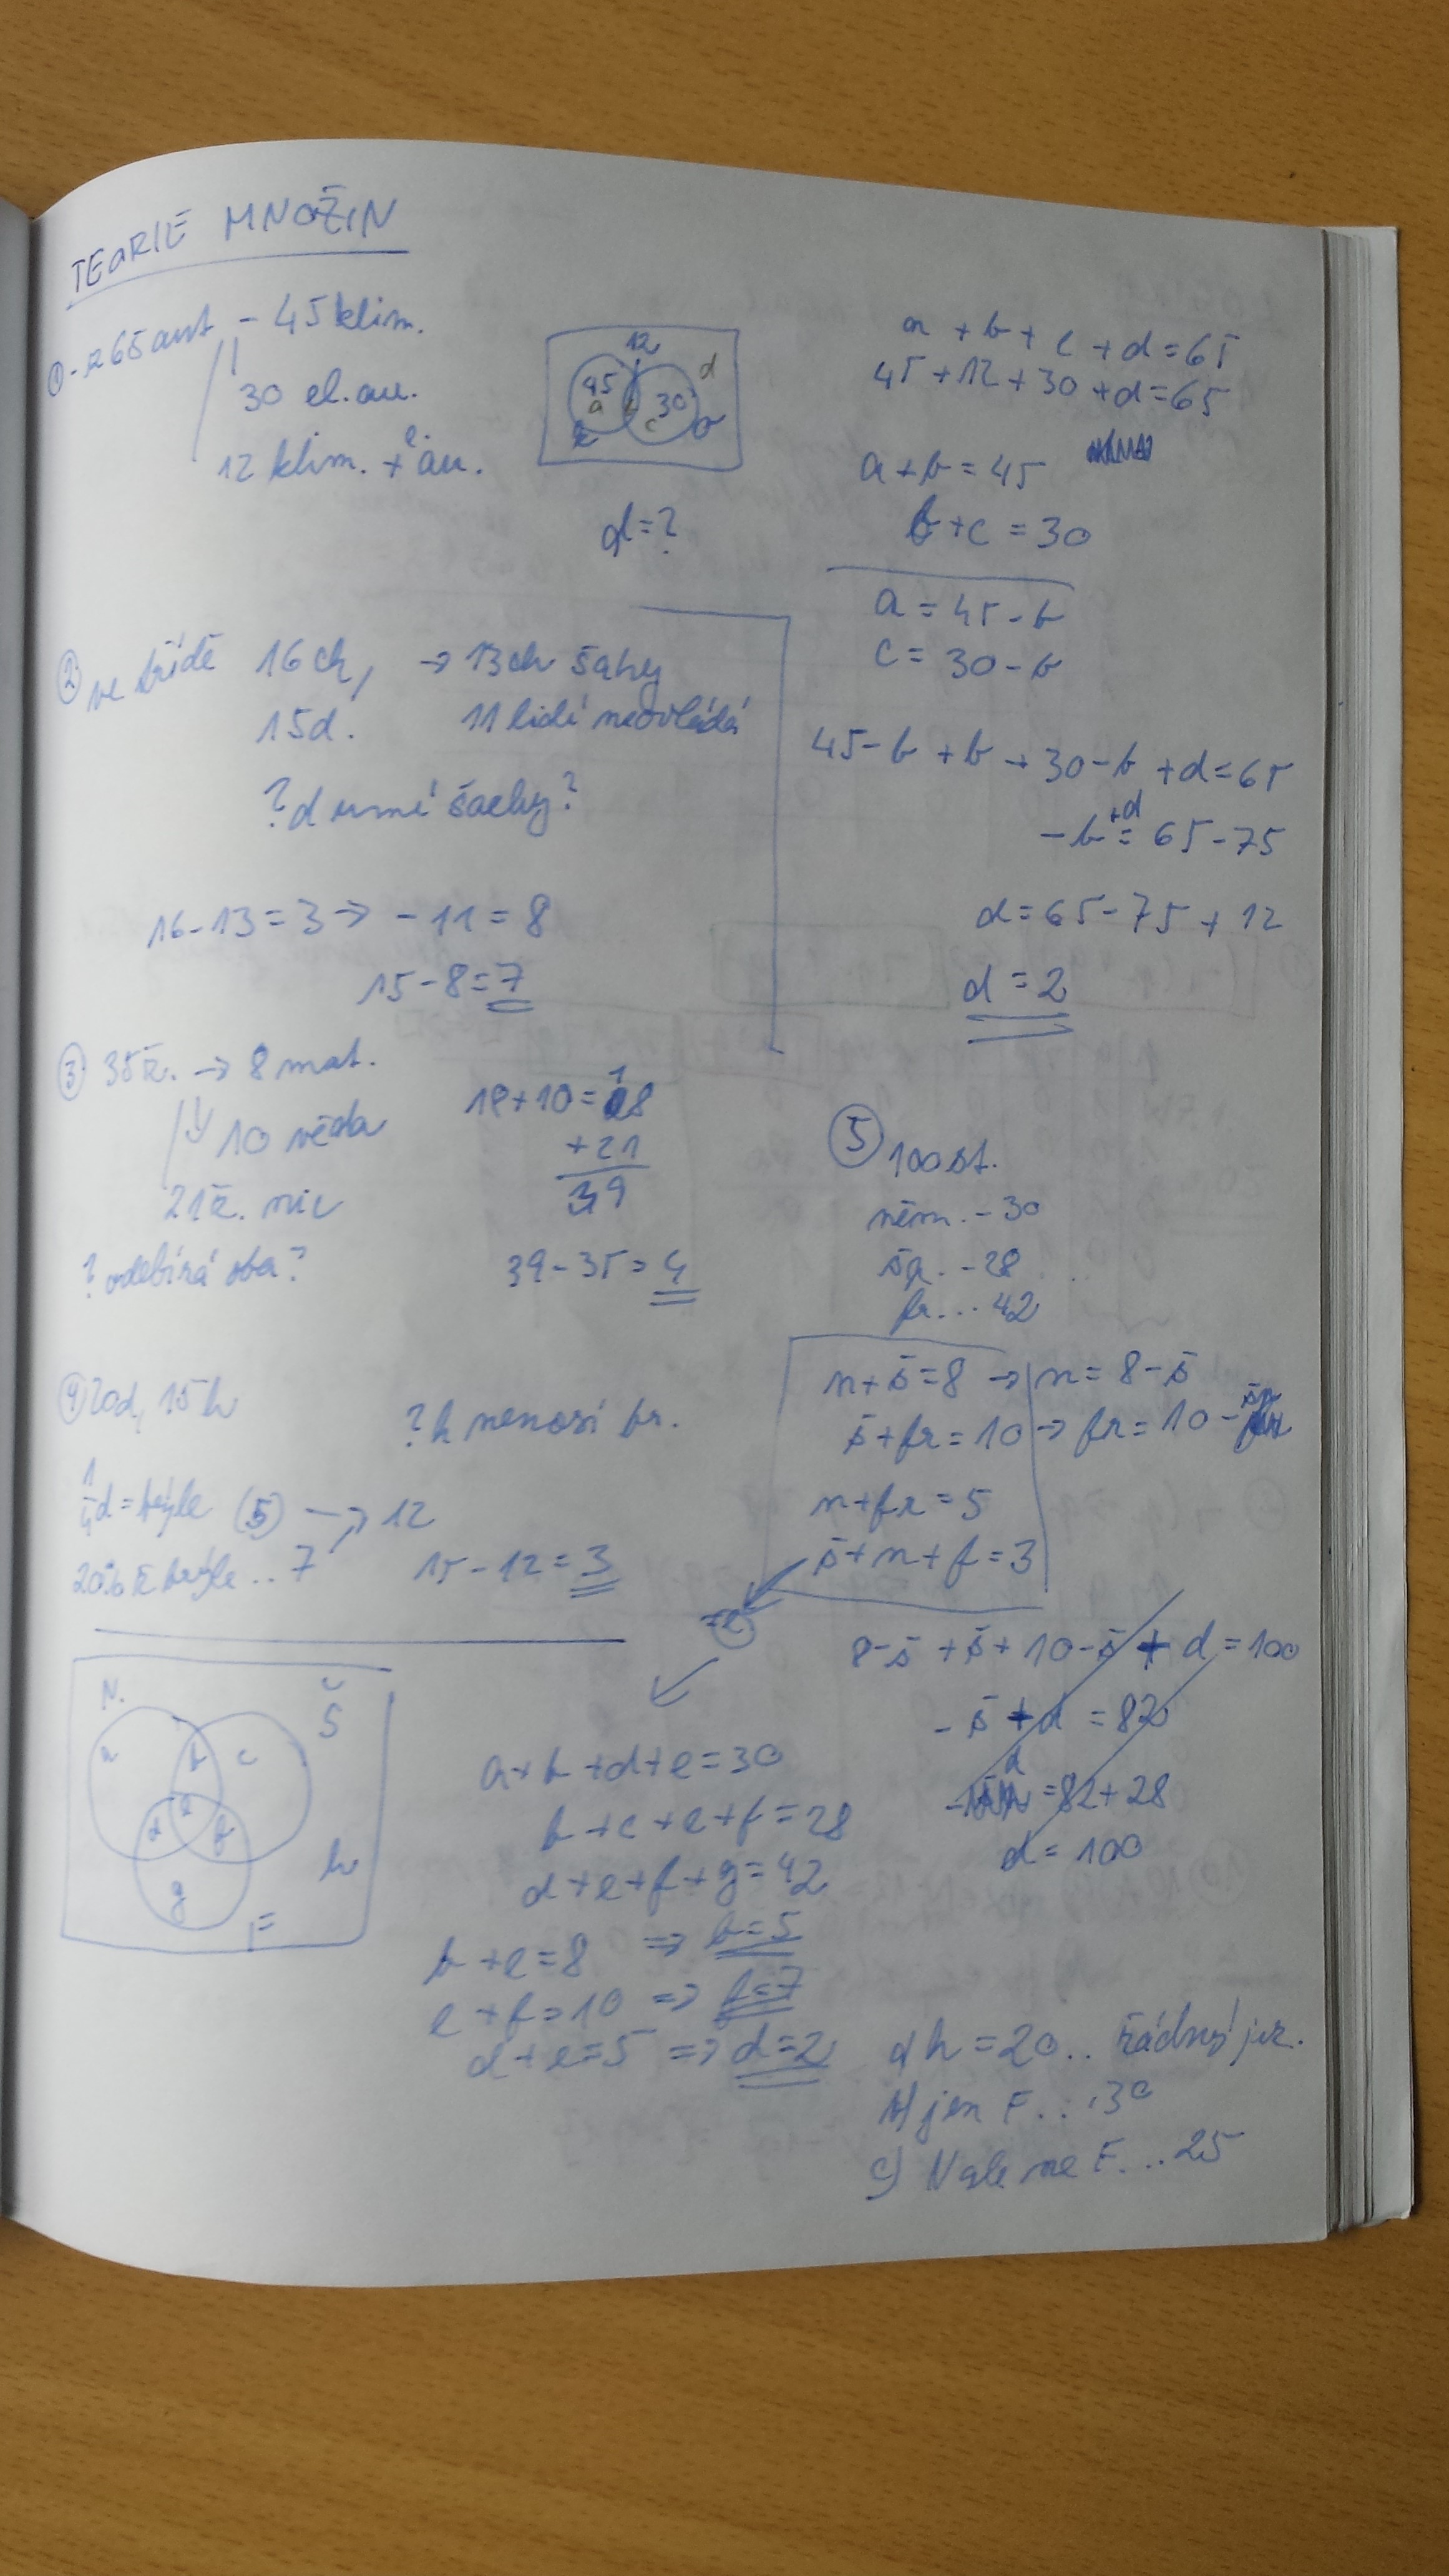 TEORIE MNOŽIN
① - z 65 aut - 45 klim.
30 el. au.
12 klim. + e. au.
12
45 30 d
a b c
d = ?
a + b + c + d = 65
45 + 12 + 30 + d = 65
a + b = 45
b + c = 30
a = 45 - b
c = 30 - b
45 - b + b + 30 - b + d = 65
- b + d = 65 - 75
d = 65 - 75 + 12
d = 2
② ve třídě 16 ch, → 13 ch šachy
15 d. 11 lidí neovládá
? d umí šachy?
16 - 13 = 3 → - 11 = 8
15 - 8 = 7
③ 35 ž. → 8 mat.
10 věda
21 ž. nic
? odebírá oba?
+ 10 = 18
+ 21
39
39 - 35 = 4
④ 20d, 15h
? h nenosí br.
1/4 d = brýle (5) → 12
20% ž brýle .. 7
15 - 12 = 3
⑤ 100 st.
něm. - 30
šp. - 28
fr... 42
n + š = 8 → n = 8 - š
š + fr = 10 → fr = 10 - šp
n + fr = 5
š + n + f = 3
= e
8 - š + š + 10 - š + d = 100
- š + d = 82
d = 82 + 28
d = 100
N. Š
a b c
d e f
g h
F
a + b + d + e = 30
b + c + e + f = 28
d + e + f + g = 42
b + e = 8 ⇒ b = 5
e + f = 10 ⇒ f = 7
d + e = 5 ⇒ d = 2
a) h = 20.. žádný jaz.
b) jen F... 30
c) N ale ne F... 25